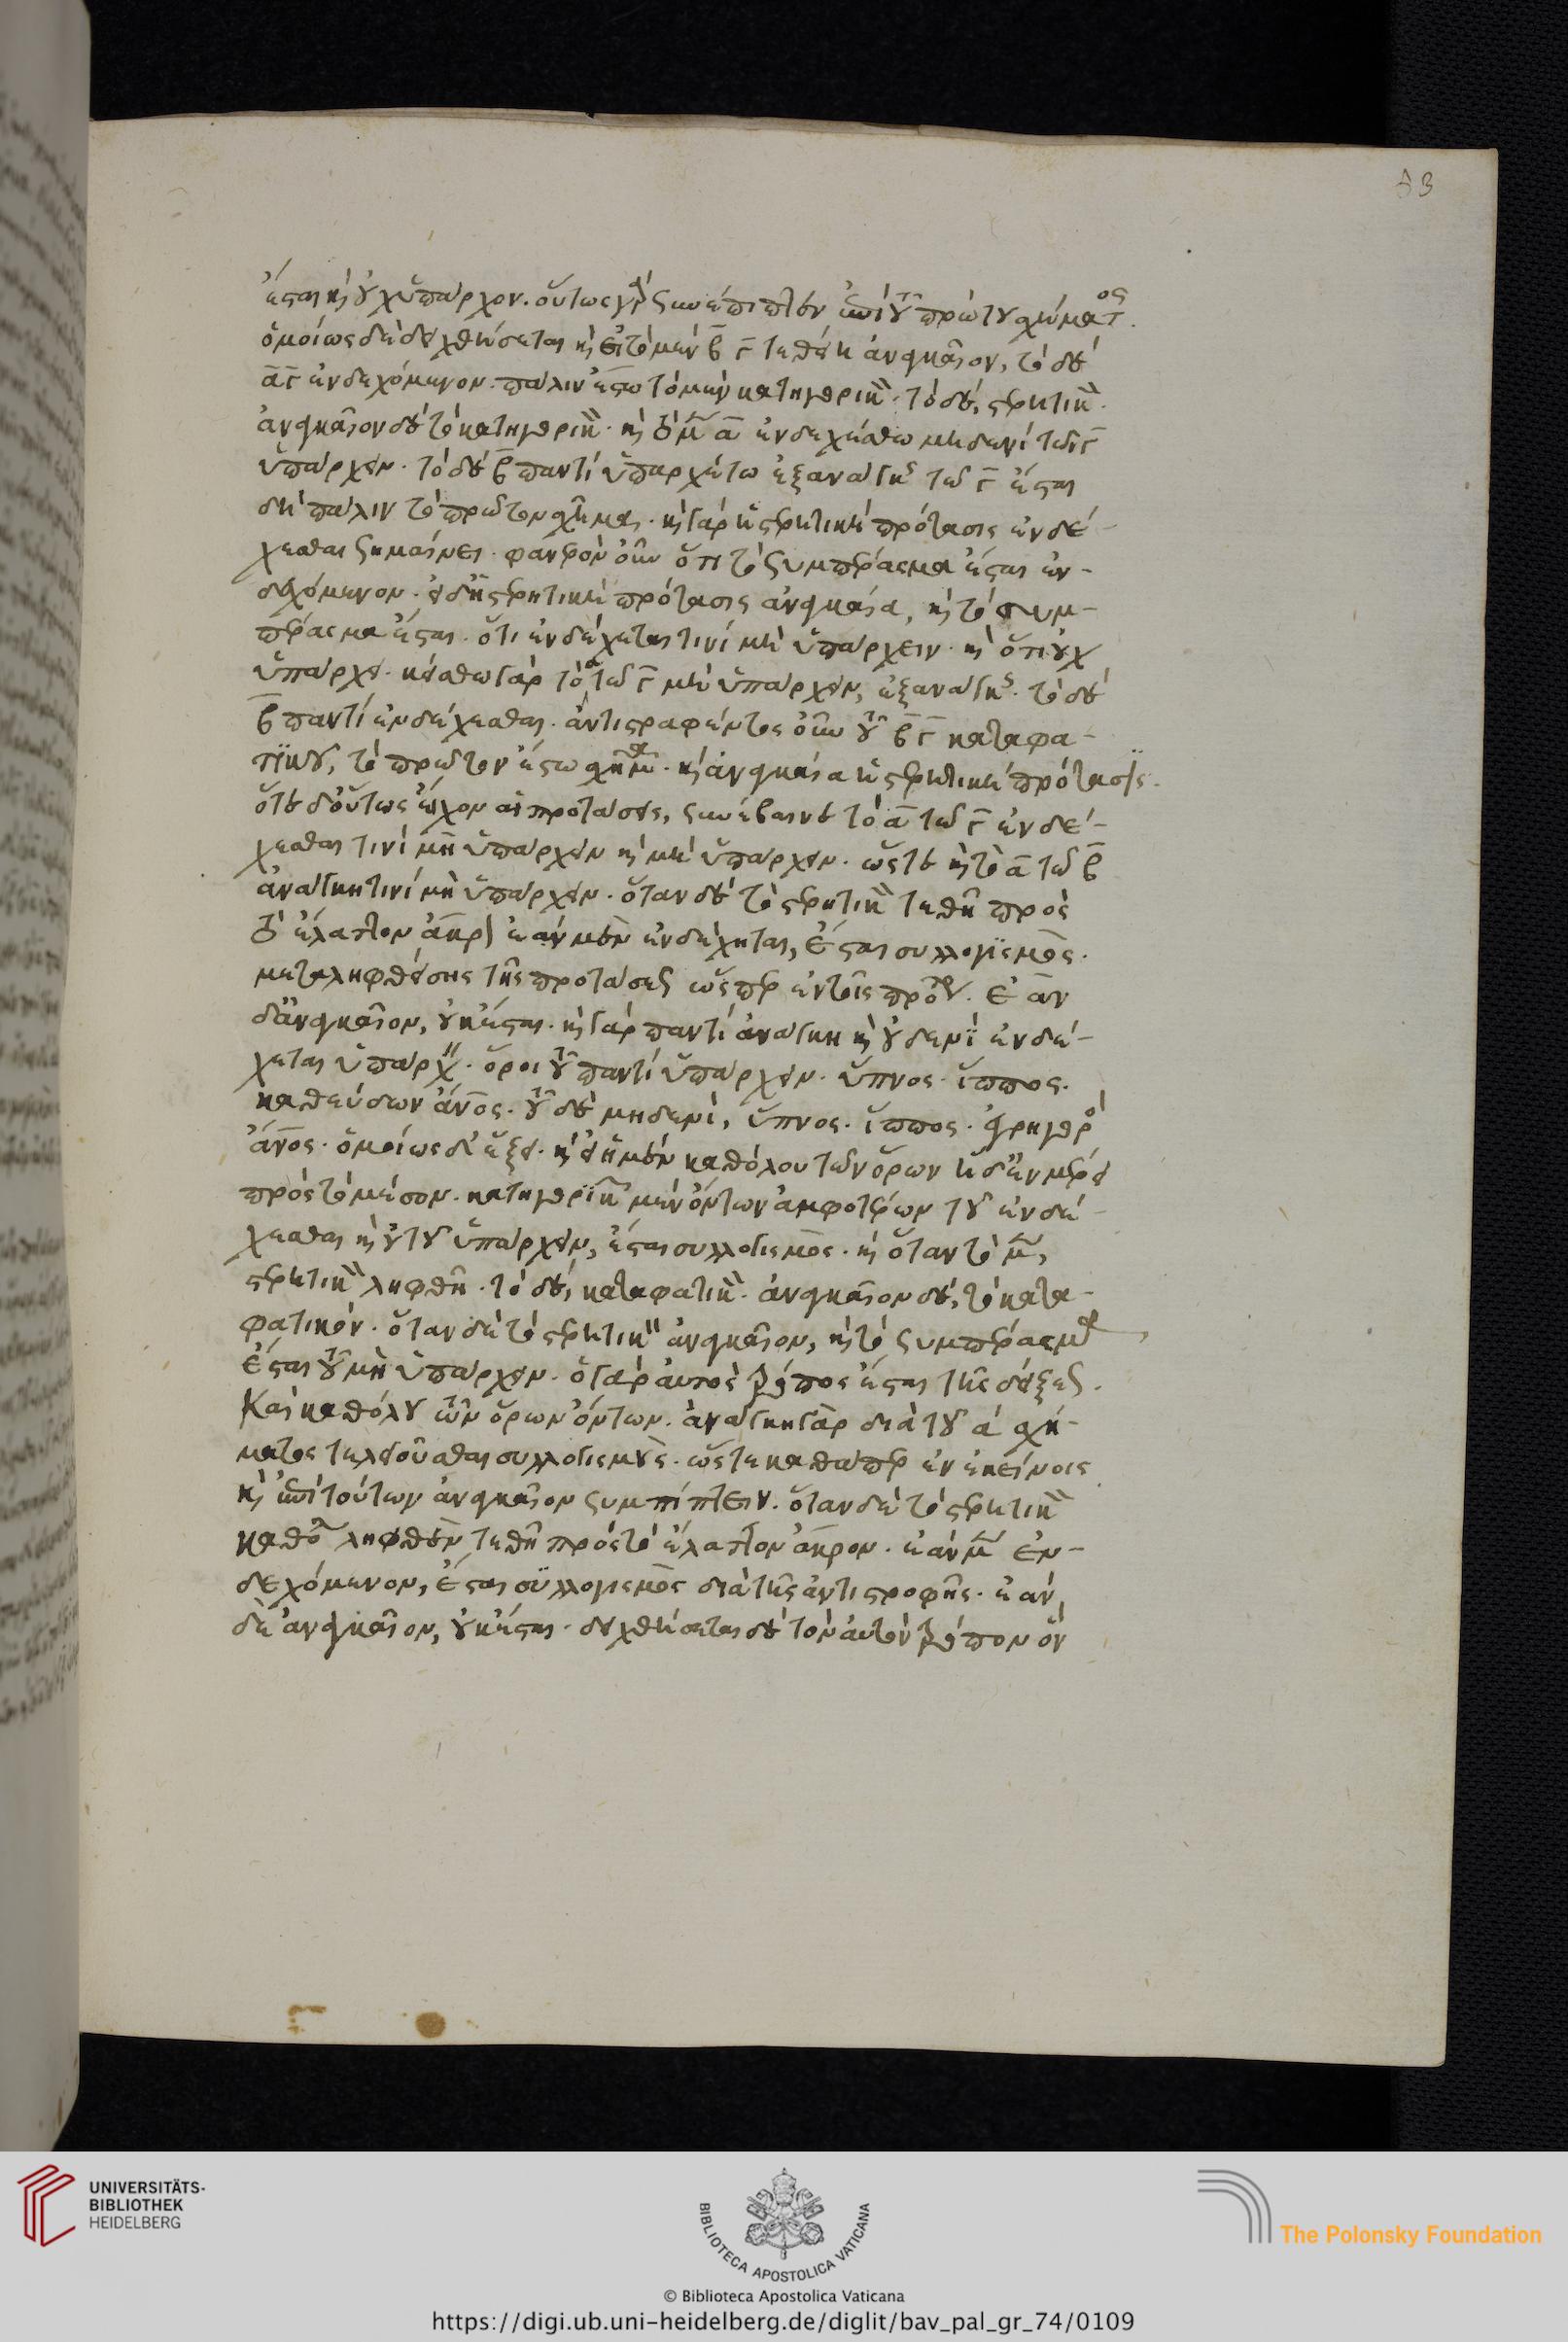 53
ἔσται κ̀ οὐχ ὑπάρχον. οὕτως γὰρ συνέπιπτεν ἐπὶ τοῦ πρώτου σχήματος.
ὁμοίως δὲ δειχθήσεται κ̀ εἰ τὸ μὲν β̅ γ̅ τεθείη ἀναγκαῖον, τὸ δὲ
α̅ γ̅ ἐνδεχόμενον. πάλιν ἔστω τὸ μὲν κατηγορικὸν. τὸ δὲ, στερητικὸν.
ἀναγκαῖον δὲ τὸ κατηγορικὸν. κ̀ τὸ μὲν α̅ ἐνδεχέσθω μηδενὶ τῶν γ̅
ὑπάρχειν. τὸ δὲ β̅ παντὶ ὑπαρχέτω ἐξ ἀνάγκης τῷ γ̅ ἔσται
δὴ πάλιν τὸ πρῶτον σχῆμα. κ̀ γὰρ ἡ στερητικὴ πρότασις ἐνδέ-
χεσθαι σημαίνει. φανερὸν οὖν ὅτι τὸ συμπέρασμα ἔσται ἐν-
δεχόμενον. εἰ δ' ἡ στερητικὴ πρότασις ἀναγκαία, κ̀ τὸ συμ-
πέρασμα ἔσται. ὅτι ἐνδέχεται τινὶ μὴ ὑπάρχειν. κ̀ ὅτι οὐχ
ὑπάρχει. κείσθω γὰρ τὸ α τῷ γ̅ μὴ ὑπάρχειν, ἐξ ἀνάγκης. τὸ δὲ
β̅ παντὶ ἐνδέχεσθαι. ἀντιστραφέντος οὖν τοῦ β̅ γ̅ καταφα-
τικοῦ, τὸ πρῶτον ἔστω σχῆμα. κ̀ ἀναγκαία ἡ στερητικὴ πρότασις.
ὅτε δ' οὕτως εἶχον αἱ προτάσεις, συνέβαινε τὸ α̅ τῷ γ̅ ἐνδέ-
χεσθαι τινὶ μὴ ὑπάρχειν κ̀ μὴ ὑπάρχειν. ὥστε κ̀ τὸ α̅ τῷ β̅
ἀνάγκη τινὶ μὴ ὑπάρχειν. ὅταν δὲ τὸ στερητικὸν τεθῆ πρὸς
τὸ ἔλαττον ἄκρον ἐὰν μὲν ἐνδέχηται, ἔσται συλλογισμὸς.
μεταληφθείσης τῆς προτάσεως ὥσπερ ἐν τοῖς πρότερον. ἐὰν
δ' ἀναγκαῖον, οὐκ ἔσται. κ̀ γὰρ παντὶ ἀνάγκη κ̀ οὐδενὶ ἐνδέ-
χεται ὑπάρχειν. ὅροι τοῦ παντὶ ὑπάρχειν. ὕπνος. ἵππος.
καθεύδων ἄνος. τοῦ δὲ μηδενὶ, ὕπνος. ἵππος. ἐγρηγορὼς
ἄνος. ὁμοίως δ' ἕξει. κ̀ εἰ ἡ μὲν καθόλου τῶν ὅρων ἡ δ' ἐν μέρει
πρὸς τὸ μέσον. κατηγορικῶν μὲν ὄντων ἀμφοτέρων τοῦ ἐνδέ-
χεσθαι κ̀ οὐ τοῦ ὑπάρχειν, ἔσται συλλογισμὸς. κ̀ ὅταν τὸ μὲν,
στερητικὸν ληφθῆ. τὸ δὲ, καταφατικὸν. ἀναγκαῖον δὲ, τὸ κατα-
φατικόν. ὅταν δὲ τὸ στερητικὸν ἀναγκαῖον, κ̀ τὸ συμπέρασμα
ἔσται τοῦ μὴ ὑπάρχειν. ὁ γὰρ αὐτὸς τρόπος ἔσται τῆς δείξεως.
Καὶ καθόλου τῶν ὅρων ὄντων. ἀνάγκη γὰρ διὰ τοῦ α' σχή-
ματος τελειοῦσθαι συλλογισμοὺς. ὥστε καθάπερ ἐν ἐκείνοις
κ̀ ἐπὶ τούτων ἀναγκαῖον συμπίπτειν. ὅταν δὲ τὸ στερητικὸν
καθόλου ληφθὲν τεθῆ πρὸς τὸ ἔλαττον ἄκρον. ἐὰν μὲν ἐν-
δεχόμενον, ἔσται συλλογισμὸς διὰ τῆς ἀντιστροφῆς. ἐὰν
δὲ ἀναγκαῖον, οὐκ ἔσται. δειχθήσεται δὲ τὸν αὐτὸν τρόπον ὃν
UNIVERSITÄTS-
BIBLIOTHEK
HEIDELBERG
BIBLIOTECA APOSTOLICA VATICANA
The Polonsky Foundation
© Biblioteca Apostolica Vaticana
https://digi.ub.uni-heidelberg.de/diglit/bav_pal_gr_74/0109